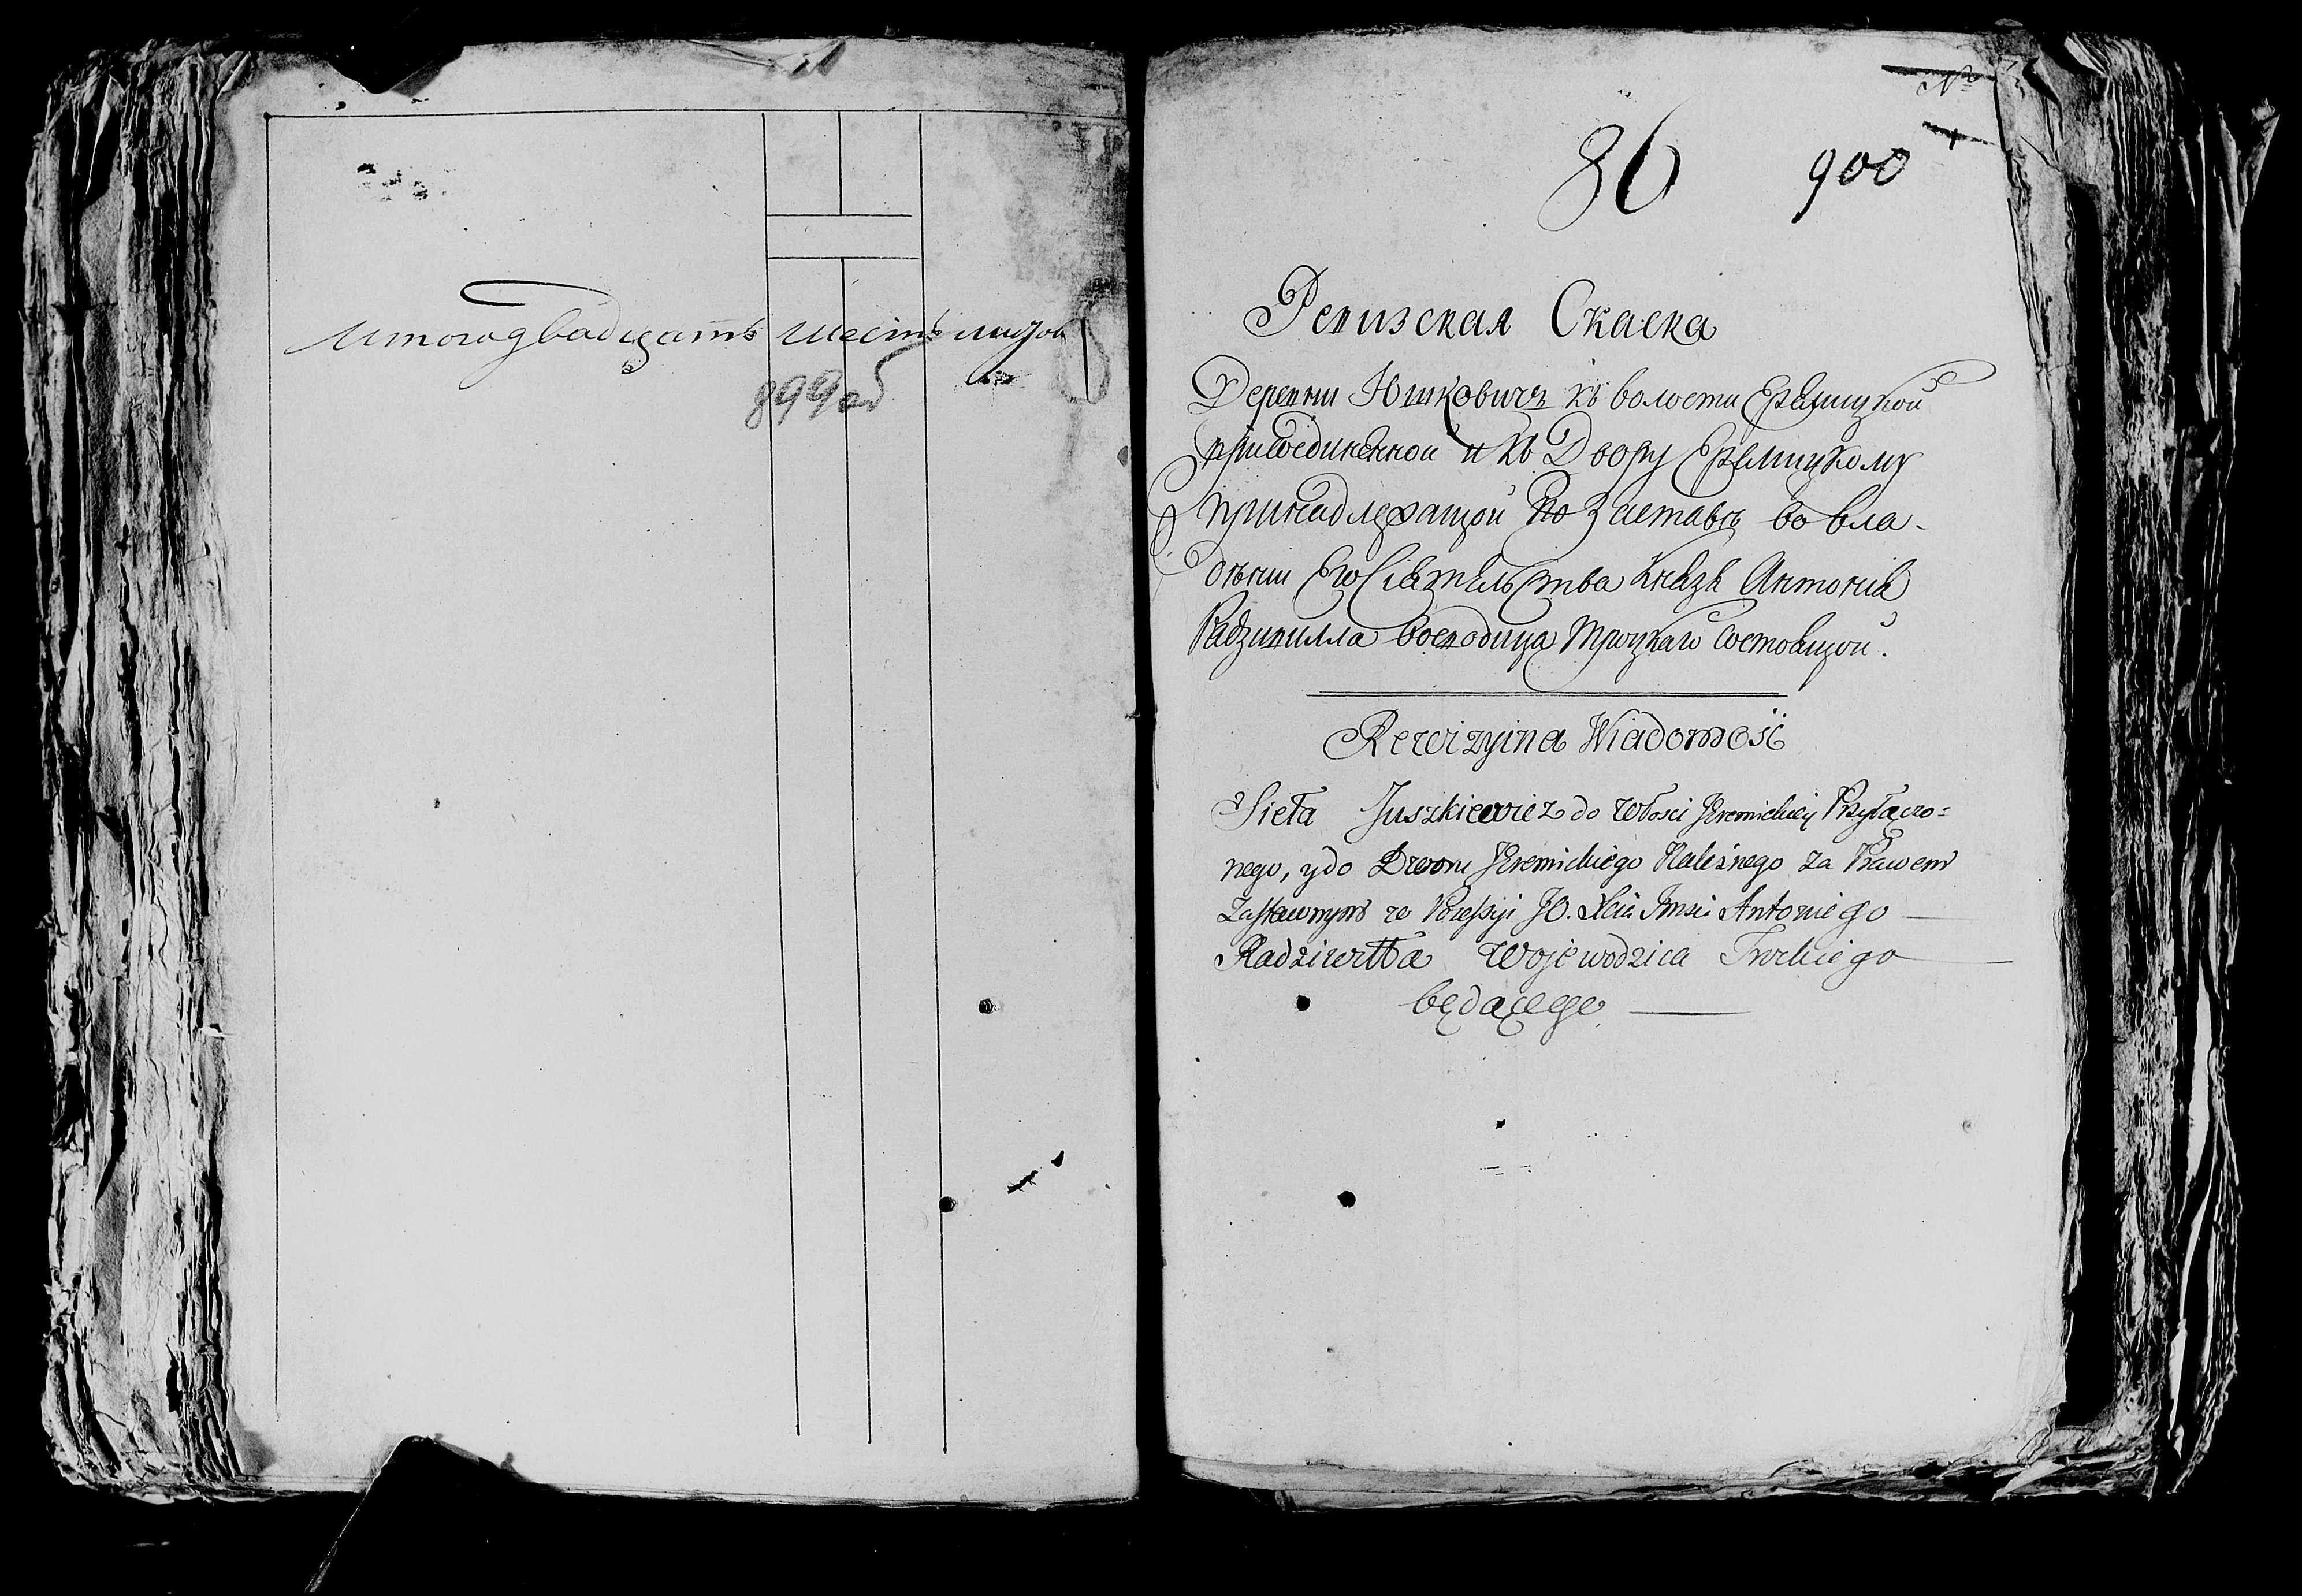 Итого двадцать шесть листов
899 об
№
86 900
Ревизская Скаска
Деревни Юшковичъ къ волости Еремицкой
присоединенной и къ Двору Еремицкому
принадлежащой по Заставѣ во вла-
дѣнии Его Сіятельства Князя Антонія
Радзивилла воеводица Троцкаго состоящой.
Rewizyina Wiadomość
Sieła Juszkiewicz do włości Jeremickiey Przyłączo=
nego, y do Dworu Jeremickiego Należnego za Prawem
Zastawnym w Possessyi JO. Xcia Jmsci Antoniego
Radziwiłła Wojewodzica Trockiego
będącego